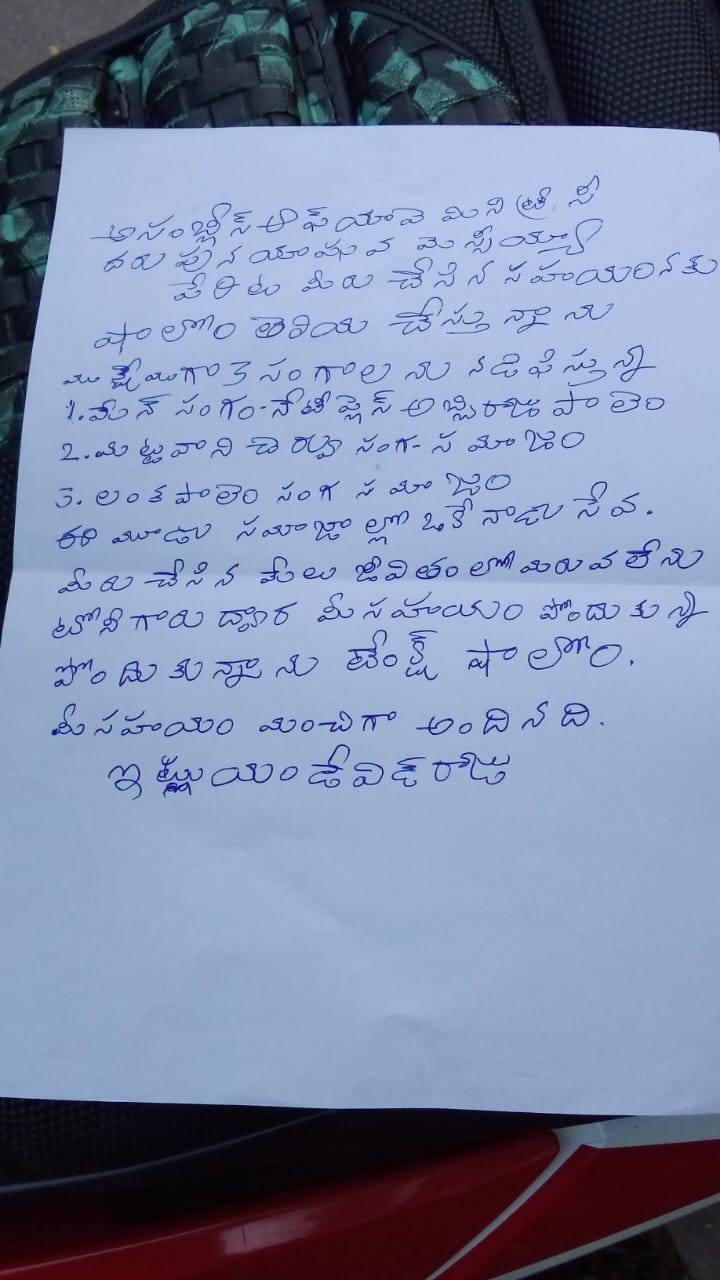 అసంబ్లీస్ ఆఫ్ యావె మినిత్రీ సీ
దరు పున యాషువ మెస్సీయ్యా
పేరిట మీరు చేసిన సహాయంనకు
షాలోం తెలియ చేస్తున్నాను
ముఖ్యముగా 3 సంగాలను నడిపిస్తున్నా
1. మేన్ సంగం-సేతీప్లైస్ అబ్బిరాజు పాలెం
2. మట్టువాని చెర్వు సంగ-సమాజం
3. లంకపాలెం సంగ సమాజం
ఈ మూడు సమాజాల్లో ఒకే నాడు సేవ.
మీరు చేసిన మేలు జీవితంలో మరువలేను
టోనీగారు ద్వార మీ సహాయం పొందుకున్నా
పొందుకున్నాను థేంక్స్ షాలోం.
మీ సహాయం మంచిగా అందినది.
ఇట్లు యం డేవిడ్ రాజు